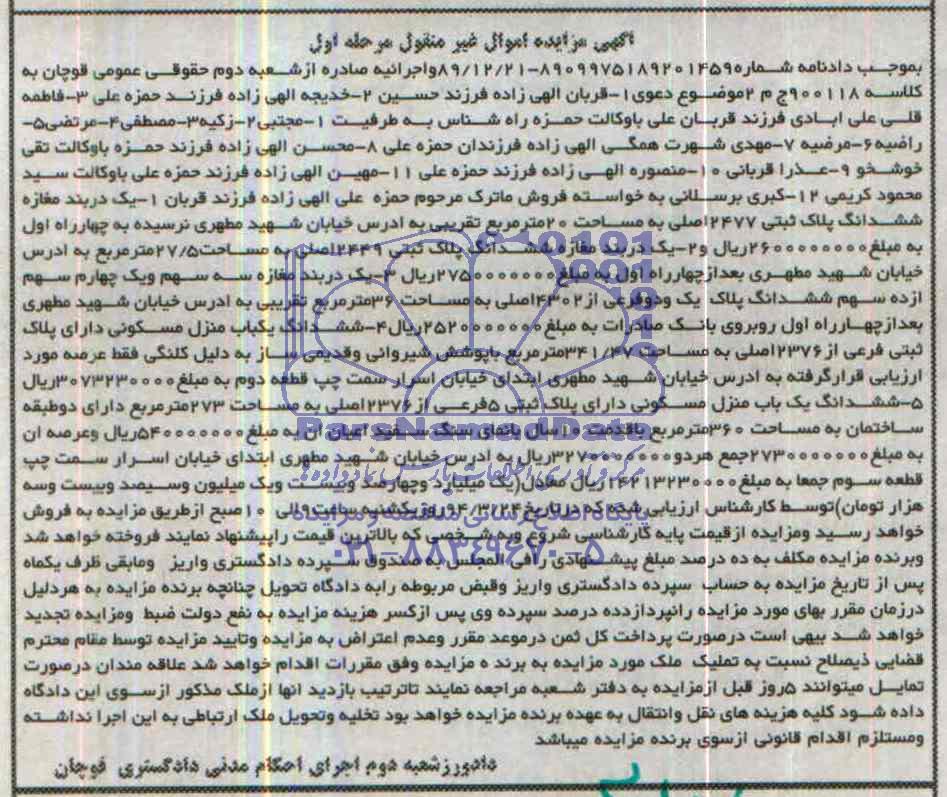 آگهی مزایده اموال غیر منقول مرحله اول
بموجب دادنامه شماره۸۹۰۹۹۷۵۱۸۹۲۰۱۴۵۹-۸۹/۱۲/۲۱واجرائیه صادره ازشعبه دوم حقوقی عمومی قوچان به
کلاسه ۹۰۰۱۱۸ج م ۲موضوع دعوی۱-قربان الهی زاده فرزند حسین ۲-خدیجه الهی زاده فرزند حمزه علی ۳-فاطمه
قلی علی ابادی فرزند قربان علی باوکالت حمزه راه شناس به طرفیت ۱-مجتبی۲-زکیه۳-مصطفی۴-مرتضی۵-
راضیه۶-مرضیه ۷-مهدی شهرت همگی الهی زاده فرزندان حمزه علی ۸-محسن الهی زاده فرزند حمزه باوکالت تقی
خوشخو ۹-عذرا قربانی ۱۰-منصوره الهی زاده فرزند حمزه علی ۱۱-مهین الهی زاده فرزند حمزه علی باوکالت سید
محمود کریمی ۱۲-کبری برسلانی به خواسته فروش ماترک مرحوم حمزه علی الهی زاده فرزند قربان ۱-یک دربند مغازه
ششدانگ پلاک ثبتی ۲۴۷۷اصلی به مساحت ۲۰مترمربع تقریبی به ادرس خیابان شهید مطهری نرسیده به چهارراه اول
به مبلغ۲۶۰۰۰۰۰۰۰۰ریال و۲-یک دربند مغازه ششدانگ پلاک ثبتی ۲۴۴۹اصلی به مساحت۲۷/۵مترمربع به ادرس
خیابان شهید مطهری بعدازچهارراه اول به مبلغ۲۷۵۰۰۰۰۰۰۰ریال ۳-یک دربند مغازه سه سهم ویک چهارم سهم
ازده سهم ششدانگ پلاک یک ودوفرعی از۴۳۰۲اصلی به مساحت ۳۶مترمربع تقریبی به ادرس خیابان شهید مطهری
بعدازچهارراه اول روبروی بانک صادرات به مبلغ۲۵۲۰۰۰۰۰۰۰ریال۴-ششدانگ یکباب منزل مسکونی دارای پلاک
ثبتی فرعی از۲۳۷۶اصلی به مساحت ۳۴۱/۴۷مترمربع باپوشش شیروانی وقدیمی ساز به دلیل کلنگی فقط عرصه مورد
ارزیابی قرارگرفته به ادرس خیابان شهید مطهری ابتدای خیابان اسرار سمت چپ قطعه دوم به مبلغ۳۰۷۳۲۳۰۰۰۰ریال
۵-ششدانگ یک باب منزل مسکونی دارای پلاک ثبتی ۵فرعی از۲۳۷۶اصلی به مساحت ۲۷۳مترمربع دارای دوطبقه
ساختمان به مساحت ۳۶۰مترمربع باقدمت ۱۰سال بانمای سنگ سفید اعیان ان به مبلغ۵۴۰۰۰۰۰۰۰ریال وعرصه ان
به مبلغ۲۷۳۰۰۰۰۰۰۰جمع هردو۳۲۷۰۰۰۰۰۰۰ریال به ادرس خیابان شهید مطهری ابتدای خیابان اسرار سمت چپ
قطعه سوم جمعا به مبلغ۱۴۲۱۳۲۳۰۰۰۰ریال معادل(یک میلیارد وچهارصد وبیست ویک میلیون وسیصد وبیست وسه
هزار تومان)توسط کارشناس ارزیابی شده که درتاریخ۹۴/۳/۲۴روزیکشنبه ساعت۹الی ۱۰صبح ازطریق مزایده به فروش
خواهد رسید ومزایده ازقیمت پایه کارشناسی شروع وبه شخصی که بالاترین قیمت راپیشنهاد نمایند فروخته خواهد شد
وبرنده مزایده مکلف به ده درصد مبلغ پیشنهادی رافی المجلس به صندوق سپرده دادگستری واریز ومابقی ظرف یکماه
پس از تاریخ مزایده به حساب سپرده دادگستری واریز وقبض مربوطه رابه دادگاه تحویل چنانچه برنده مزایده به هردلیل
درزمان مقرر بهای مورد مزایده رانپردازدده درصد سپرده وی پس ازکسر هزینه مزایده به نفع دولت ضبط ومزایده تجدید
خواهد شد بیهی است درصورت پرداخت کل ثمن درموعد مقرر وعدم اعتراض به مزایده وتایید مزایده توسط مقام محترم
قضایی ذیصلاح نسبت به تملیک ملک مورد مزایده به برند ه مزایده وفق مقررات اقدام خواهد شد علاقه مندان درصورت
تمایل میتوانند ۵روز قبل ازمزایده به دفتر شعبه مراجعه نمایند تاترتیب بازدید انها ازملک مذکور ازسوی این دادگاه
داده شود کلیه هزینه های نقل وانتقال به عهده برنده مزایده خواهد بود تخلیه وتحویل ملک ارتباطی به این اجرا نداشته
ومستلزم اقدام قانونی ازسوی برنده مزایده میباشد
دادورزشعبه دوم اجرای احکام مدنی دادگستری قوچان
ParsNamadData
مرکز فرآوری اطلاعات پارس نماد داده ها
پایگاه اطلاع رسانی مناقصه و مزایده
۰۲۱-۸۸۳۴۹۶۷۰-۵